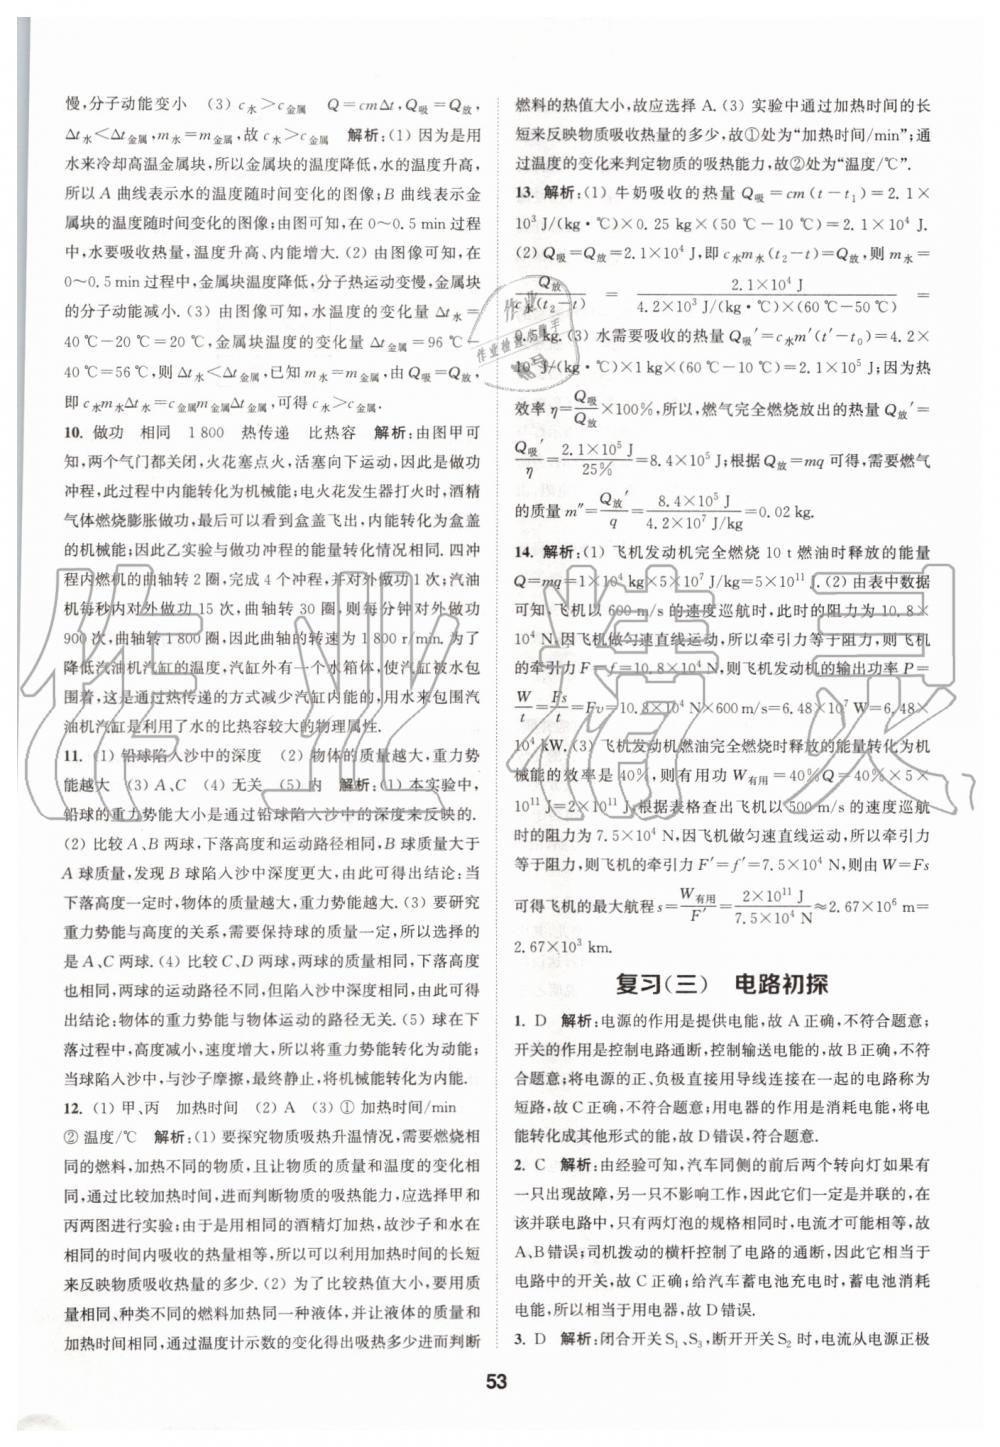 慢,分子动能变小 (3) c水＞c金属 Q＝cmΔt,Q吸＝Q放,
Δt水＜Δt金属,m水＝m金属,故 c水＞c金属 解析:(1) 因为是用
水来冷却高温金属块,所以金属块的温度降低,水的温度升高,
所以 A 曲线表示水的温度随时间变化的图像;B 曲线表示金
属块的温度随时间变化的图像;由图可知,在 0～0.5 min 过程
中,水要吸收热量,温度升高、内能增大.(2) 由图像可知,在
0～0.5 min 过程中,金属块温度降低,分子热运动减慢,金属块
的分子动能减小.(3) 由图像可知,水温度的变化量 Δt水＝
40 ℃－20 ℃＝20 ℃,金属块温度的变化量 Δt金属＝96 ℃－
40 ℃＝56 ℃,则 Δt水＜Δt金属,已知 m水＝m金属,由 Q吸＝Q放,
即 c水m水Δt水＝c金属m金属Δt金属,可得 c水＞c金属.
10. 做功 相同 1 800 热传递 比热容 解析:由图甲可
知,两个气门都关闭,火花塞点火,活塞向下运动,因此是做功
冲程,此过程中内能转化为机械能;电火花发生器打火时,酒精
气体燃烧膨胀做功,最后可以看到盒盖飞出,内能转化为盒盖
的机械能;因此乙实验与做功冲程的能量转化情况相同.四冲
程内燃机的曲轴转 2 圈,完成 4 个冲程,并对外做功 1 次;汽油
机每秒对外做功 15 次,曲轴转 30 圈,则每分钟对外做功
900 次,曲轴转 1 800 圈,因此曲轴的转速为 1 800 r/min.为了
降低汽油机汽缸的温度,汽缸外有一个水箱体,使汽缸被水包
围着,这是通过热传递的方式减少汽缸内能的,用水来包围汽
油机汽缸是利用了水的比热容较大的物理属性.
11. (1) 铅球陷入沙中的深度 (2) 物体的质量越大,重力势
能越大 (3) A、C (4) 无关 (5) 内 解析:(1) 本实验中,
铅球的重力势能大小是通过铅球陷入沙中的深度来反映的.
(2) 比较 A、B 两球,下落高度和运动路径相同,B 球质量大于
A 球质量,发现 B 球陷入沙中深度更大,由此可得出结论:当
下落高度一定时,物体的质量越大,重力势能越大.(3) 要研究
重力势能与高度的关系,需要保持球的质量一定,所以选择的
是 A、C 两球.(4) 比较 C、D 两球,两球的质量和下落高度相
同,两球的运动路径不同,但陷入沙中的深度相同,由此可得
出结论:物体的重力势能与物体运动的路径无关.(5) 球在下
落过程中,高度减小,速度增大,所以将重力势能转化为动能;
当球陷入沙中,与沙子摩擦,最终静止,将机械能转化为内能.
12. (1) 甲、丙 加热时间 (2) A (3) ① 加热时间/min
② 温度/℃ 解析:(1) 要探究物质吸热升温情况,需要燃烧相
同的燃料,加热不同的物质,且让物质的质量和温度的变化相
同,通过比较加热时间,进而判断物质的吸热能力,应选择甲和
丙两图进行实验;由于是用相同的酒精灯加热,故沙子和水在
相同的时间内吸收的热量相等,所以实验中通过加热时间的长短
来反映物质吸收热量的多少.(2) 为了比较热值大小,要用质
量相同、种类不同的燃料加热同一种液体,并让液体的质量和
加热时间相同,通过温度计示数的变化得出吸热多少进而判断
燃料的热值大小,故应选择 A.(3) 实验中通过加热时间的长
短来反映物质吸收热量的多少,故①处为“加热时间/min”;通
过温度的变化来判定物质的吸热能力,故②处为“温度/℃”.
13. 解析:(1) 牛奶吸收的热量 Q吸＝cm(t－t₁)＝2.1×
10³ J/(kg·℃)×0.25 kg×(50 ℃－10 ℃)＝2.1×10⁴ J.
(2) Q吸＝Q放＝2.1×10⁴ J,即 c水m水(t₂－t)＝Q放,则 m水＝
Q放/c水(t₂－t)＝2.1×10⁴ J/4.2×10³ J/(kg·℃)×(60 ℃－50 ℃)＝
0.5 kg.(3) 水需要吸收的热量 Q吸′＝c水m′(t′－t₀)＝4.2×
10³ J/(kg·℃)×1 kg×(60 ℃－10 ℃)＝2.1×10⁵ J;因为热
效率 η＝Q吸/Q放×100%,所以,燃气完全燃烧放出的热量 Q放′＝
Q吸′/η＝2.1×10⁵ J/25%＝8.4×10⁵ J;根据 Q放＝mq 可得,需要燃气
的质量 m″＝Q放′/q＝8.4×10⁵ J/4.2×10⁷ J/kg＝0.02 kg.
14. 解析:(1) 飞机发动机完全燃烧 10 t 燃油时释放的能量
Q＝mq＝1×10⁴ kg×5×10⁷ J/kg＝5×10¹¹ J.(2) 由表中数据
可知,飞机以 600 m/s 的速度巡航时,此时的阻力为 10.8×
10⁴ N,因飞机做匀速直线运动,所以牵引力等于阻力,则飞机
的牵引力 F＝f＝10.8×10⁴ N,则飞机发动机的输出功率 P＝
W/t＝Fs/t＝Fv＝10.8×10⁴ N×600 m/s＝6.48×10⁷ W＝6.48×
10⁴ kW.(3) 飞机发动机燃油完全燃烧时释放的能量转化为机
械能的效率是 40%,则有用功 W有用＝40%Q＝40%×5×
10¹¹ J＝2×10¹¹ J;根据表格查出飞机以 500 m/s 的速度巡航
时的阻力为 7.5×10⁴ N,因飞机做匀速直线运动,所以牵引力
等于阻力,则飞机的牵引力 F′＝f′＝7.5×10⁴ N,由 W＝Fs
可得飞机的最大航程 s＝W有用/F′＝2×10¹¹ J/7.5×10⁴ N≈2.67×10⁶ m＝
2.67×10³ km.
复习(三) 电路初探
1. D 解析:电源的作用是提供电能,故 A 正确,不符合题意;
开关的作用是控制电路通断,控制输送电能的,故 B 正确,不符
合题意;将电源的正、负极直接用导线连接在一起的电路称为
短路,故 C 正确,不符合题意;用电器的作用是消耗电能,将电
能转化成其他形式的能,故 D 错误,符合题意.
2. C 解析:由经验可知,汽车同侧的前后两个转向灯如果有
一只出现故障,另一只不影响工作,因此一定是并联的,在
该并联电路中,只有两灯泡的规格相同时,电流才可能相等,故
A、B 错误;司机拨动的横杆控制了电路的通断,因此它相当于
电路中的开关,故 C 正确;给汽车蓄电池充电时,蓄电池消耗
电能,所以相当于用电器,故 D 错误.
3. D 解析:闭合开关 S₁、S₃,断开开关 S₂ 时,电流从电源正极
53
作业精灵